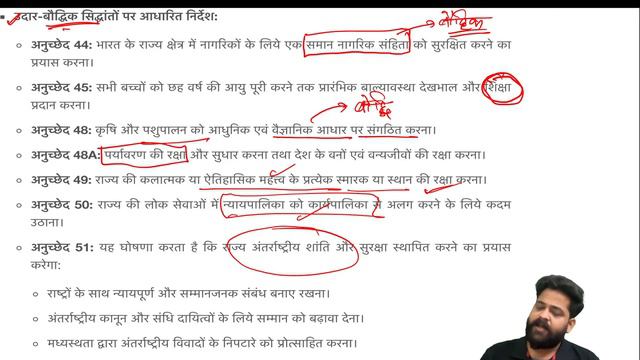 उदार-बौद्धिक सिद्धांतों पर आधारित निर्देश:
बौद्धिक
अनुच्छेद 44: भारत के राज्य क्षेत्र में नागरिकों के लिये एक समान नागरिक संहिता को सुरक्षित करने का
प्रयास करना।
अनुच्छेद 45: सभी बच्चों को छह वर्ष की आयु पूरी करने तक प्रारंभिक बाल्यावस्था देखभाल और शिक्षा
प्रदान करना।
अनुच्छेद 48: कृषि और पशुपालन को आधुनिक एवं वैज्ञानिक आधार पर संगठित करना।
अनुच्छेद 48A: पर्यावरण की रक्षा और सुधार करना तथा देश के वनों एवं वन्यजीवों की रक्षा करना।
अनुच्छेद 49: राज्य की कलात्मक या ऐतिहासिक महत्त्व के प्रत्येक स्मारक या स्थान की रक्षा करना।
अनुच्छेद 50: राज्य की लोक सेवाओं में न्यायपालिका को कार्यपालिका से अलग करने के लिये कदम
उठाना।
अनुच्छेद 51: यह घोषणा करता है कि राज्य अंतर्राष्ट्रीय शांति और सुरक्षा स्थापित करने का प्रयास
करेगा:
राष्ट्रों के साथ न्यायपूर्ण और सम्मानजनक संबंध बनाए रखना।
अंतर्राष्ट्रीय कानून और संधि दायित्वों के लिये सम्मान को बढ़ावा देना।
मध्यस्थता द्वारा अंतर्राष्ट्रीय विवादों के निपटारे को प्रोत्साहित करना।